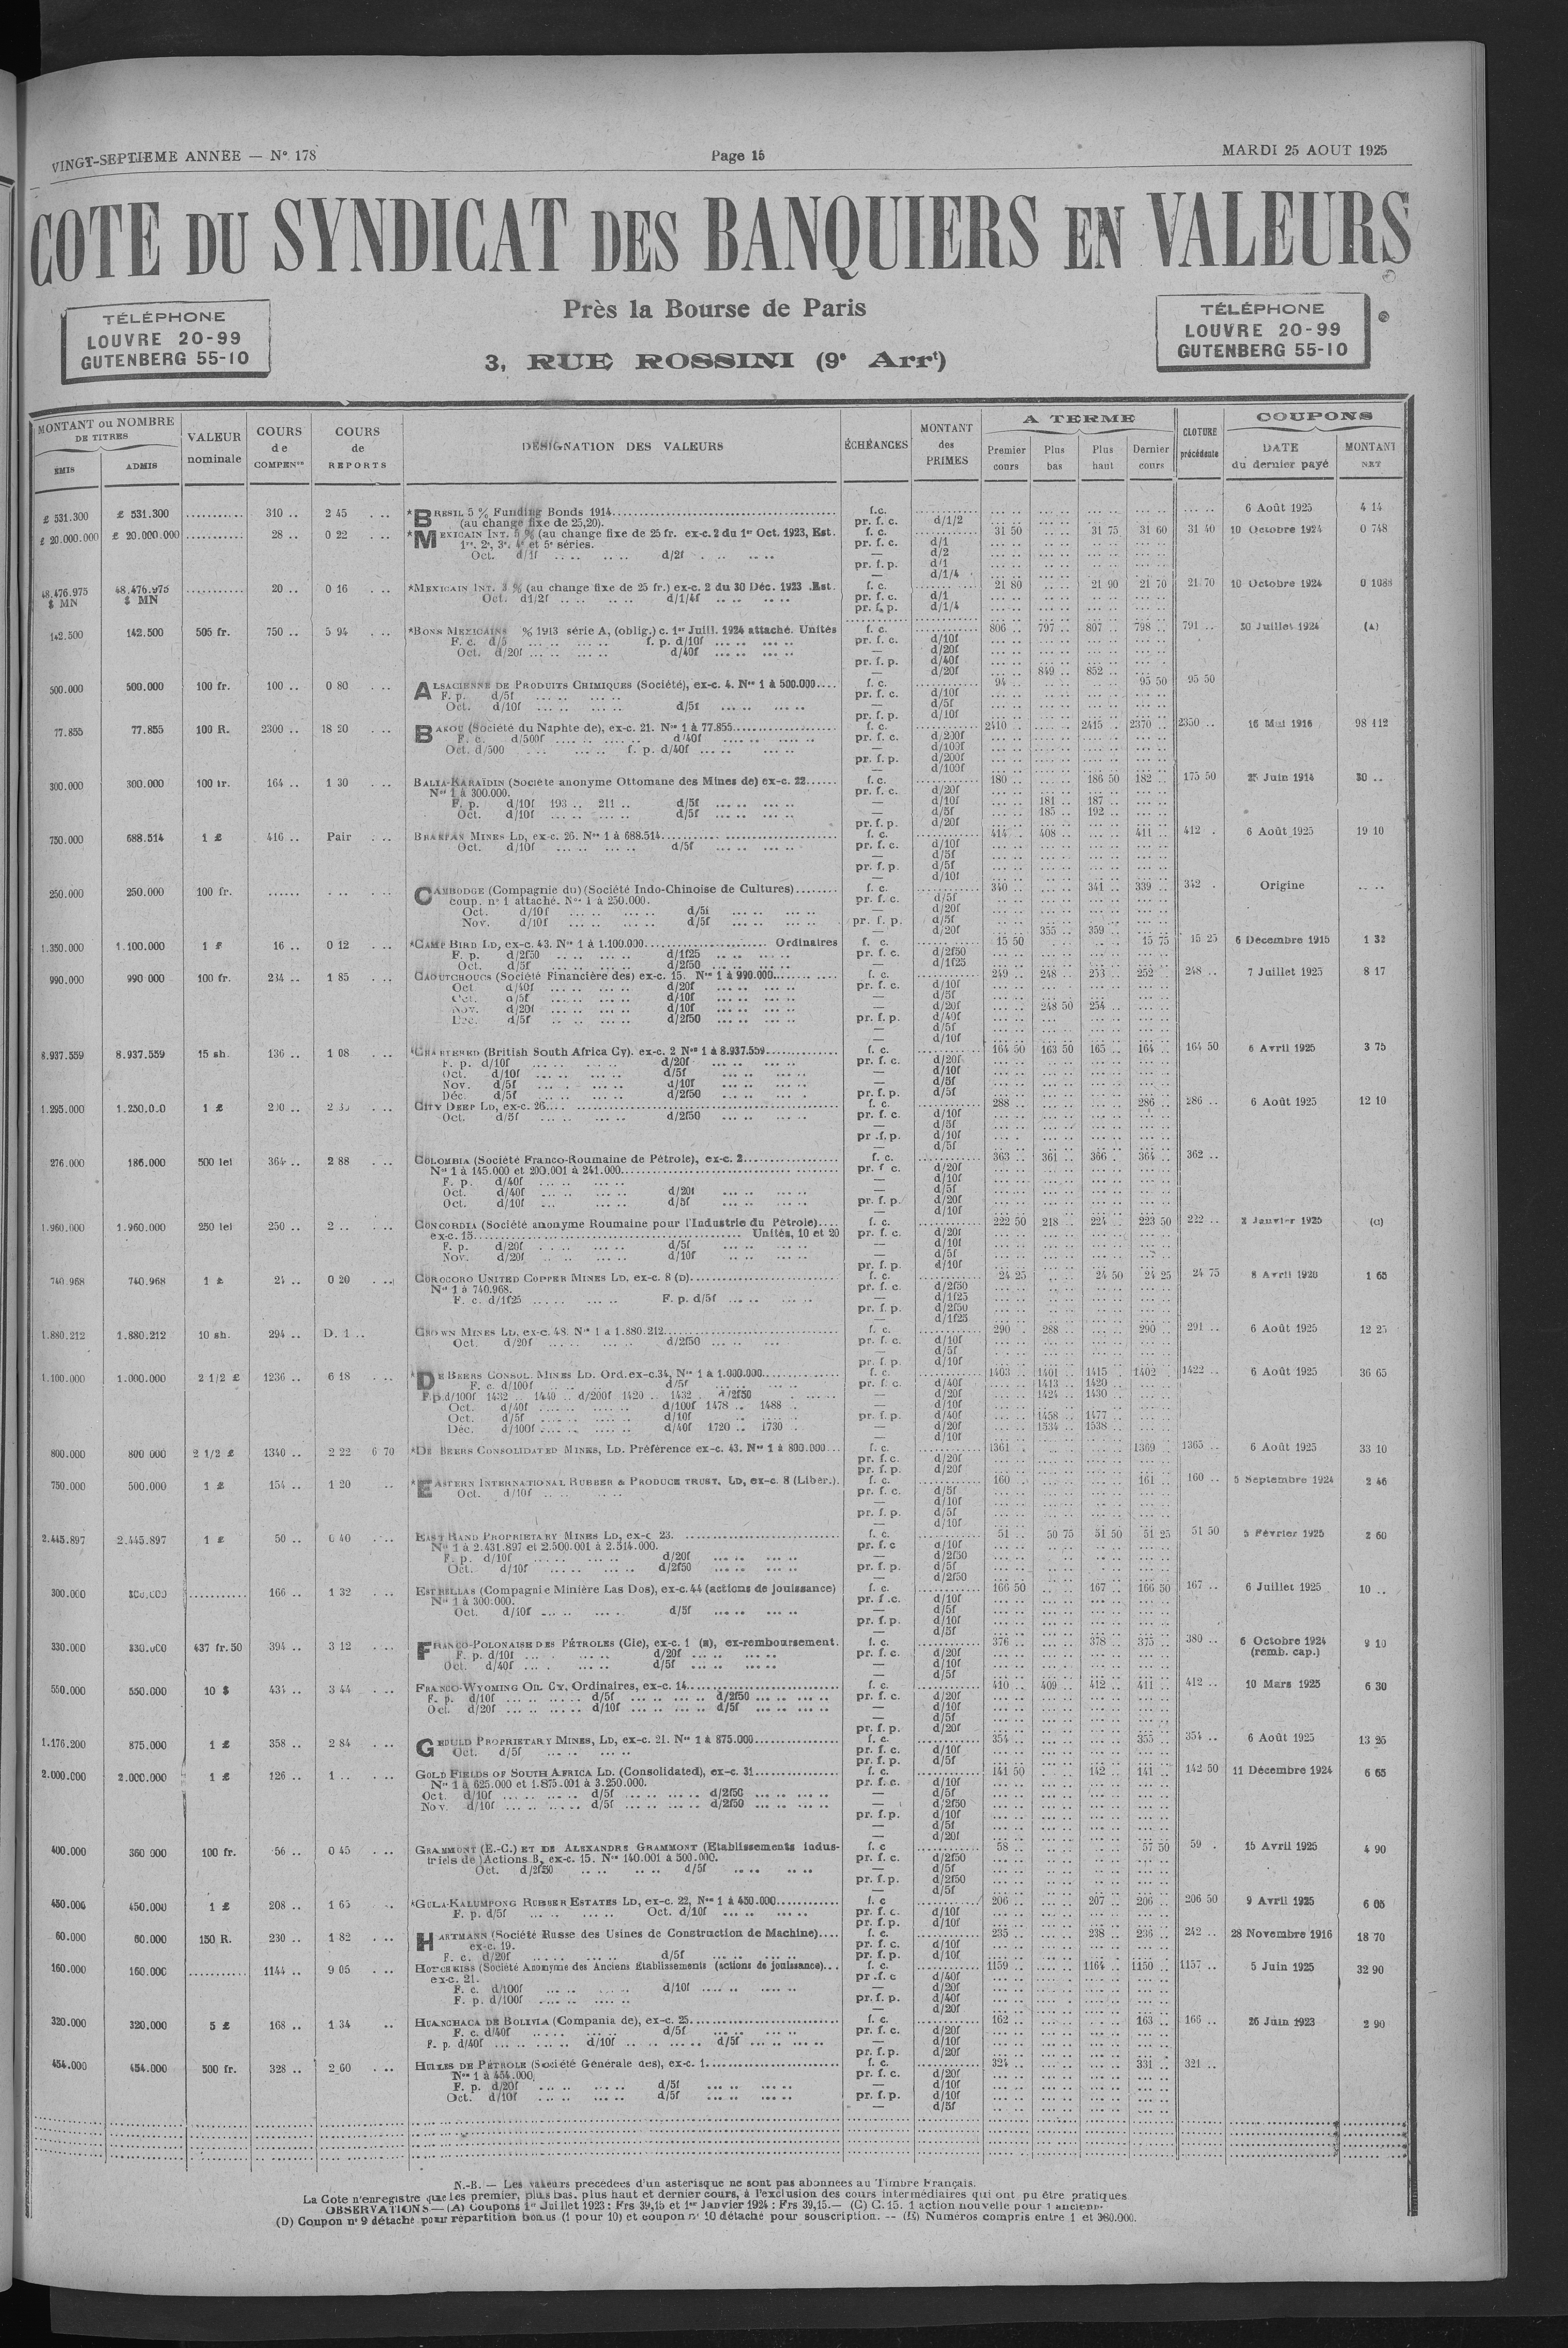 VINGT-SEPTIEME ANNEE — N° 178
Page 15
MARDI 25 AOUT 1925
COTE DU SYNDICAT DES BANQUIERS EN VALEURS
Près la Bourse de Paris
3, RUE ROSSINI (9e Arrt)
TÉLÉPHONE
LOUVRE 20-99
GUTENBERG 55-10
TÉLÉPHONE
LOUVRE 20-99
GUTENBERG 55-10
MONTANT ou NOMBRE DE TITRES
ÉMIS ADMIS
VALEUR nominale
COURS de COMPENon
COURS de REPORTS
DÉSIGNATION DES VALEURS
ÉCHÉANCES
MONTANT des PRIMES
A TERME
Premier cours Plus bas Plus haut Dernier cours
CLOTURE précédente
COUPONS
DATE du dernier payé MONTANT NET
£ 531.300 £ 531.300 310 .. 2 45 *BRESIL 5 % Funding Bonds 1914 f.c. 6 Août 1925 4 14
(au change fixe de 25,20). pr. f. c. d/1/2
£ 20.000.000 £ 20.000.000 28 .. 0 22 *MEXICAIN INT. 5 % (au change fixe de 25 fr. ex-c. 2 du 1er Oct. 1923, Est. f. c. 31 50 31 75 31 60 31 40 10 Octobre 1924 0 748
1re, 2e, 3e, 4e et 5e séries. pr. f. c. d/1
Oct. d/1f d/2f — d/2
pr. f. p. d/1
— d/1/4
48.476.975 $ MN 48.476.975 $ MN 20 .. 0 16 *MEXICAIN INT. 3 % (au change fixe de 25 fr.) ex-c. 2 du 30 Déc. 1923 .Est. f. c. 21 80 21 90 21 70 21 70 10 Octobre 1924 0 1088
Oct. d1/2f d/1/4f pr. f. c. d/1
pr. f. p. d/1/4
142.500 142.500 505 fr. 750 .. 5 94 *BONS MEXICAINS % 1913 série A, (oblig.) c. 1er Juill. 1924 attaché. Unités f. c. 806 .. 797 .. 807 .. 798 .. 791 .. 30 Juillet 1924 (A)
F. c. d/5 f. p. d/10f pr. f. c. d/10f
Oct. d/20f d/40f — d/20f
pr. f. p. d/40f
— d/20f 849 .. 852 ..
500.000 500.000 100 fr. 100 .. 0 80 ALSACIENNE DE PRODUITS CHIMIQUES (Société), ex-c. 4. Nos 1 à 500.000 f. c. 94 .. 95 50 95 50
F. p. d/5f pr. f. c. d/10f
Oct. d/10f d/5f — d/5f
pr. f. p. d/10f
77.855 77.855 100 R. 2300 .. 18 50 BAKOU (Société du Naphte de), ex-c. 21. Nos 1 à 77.855 f. c. 2410 .. 2415 .. 2370 .. 2350 .. 16 Mai 1916 98 112
F. c. d/500f d/40f pr. f. c. d/200f
Oct. d/500 f. p. d/40f — d/100f
pr. f. p. d/200f
— d/100f
300.000 300.000 100 fr. 164 .. 1 30 BALIA-KARAÏDIN (Société anonyme Ottomane des Mines de) ex-c. 22 f. c. 180 .. 186 50 182 .. 175 50 25 Juin 1914 30 ..
Nos 1 à 300.000. pr. f. c. d/20f
F. p. d/10f 193 .. 211 .. d/5f — d/10f 181 .. 187 ..
Oct. d/10f d/5f — d/5f 185 .. 192 ..
pr. f. p. d/20f
750.000 688.514 1 £ 416 .. Pair BRAKPAN MINES LD, ex-c. 26. Nos 1 à 688.514 f. c. 414 .. 408 .. 411 .. 412 . 6 Août 1925 19 10
Oct. d/10f d/5f pr. f. c. d/10f
— d/5f
pr. f. p. d/5f
— d/10f
250.000 250.000 100 fr. CAMBODGE (Compagnie du) (Société Indo-Chinoise de Cultures) f. c. 340 .. 341 .. 339 .. 342 . Origine
coup. n° 1 attaché. Nos 1 à 250.000. pr. f. c. d/5f
Oct. d/10f d/5f — d/20f
Nov. d/10f d/5f pr. f. p. d/5f
— d/20f 355 .. 359 ..
1.350.000 1.100.000 1 £ 16 .. 0 12 *CAMP BIRD LD, ex-c. 43. Nos 1 à 1.100.000 Ordinaires f. c. 15 50 15 75 15 25 6 Décembre 1915 1 32
F. p. d/2f50 d/1f25 pr. f. c. d/2f50
Oct. d/5f d/2f50 — d/1f25
990.000 990 000 100 fr. 234 .. 1 85 CAOUTCHOUCS (Société Financière des) ex-c. 15. Nos 1 à 990.000 f. c. 249 .. 248 .. 253 .. 252 .. 248 .. 7 Juillet 1925 8 17
Oct d/40f d/20f pr. f. c. d/10f
Oct. d/5f d/10f — d/5f
Nov. d/20f d/10f — d/20f 248 50 254 ..
Déc. d/5f d/2f50 pr. f. p. d/40f
— d/5f
— d/10f
8.937.559 8.937.559 15 sh. 136 .. 1 08 *CHARTERED (British South Africa Cy). ex-c. 2 Nos 1 à 8.937.559 f. c. 164 50 163 50 165 .. 164 .. 164 50 6 Avril 1925 3 75
F. p. d/10f d/20f pr. f. c. d/20f
Oct. d/10f d/5f — d/10f
Nov. d/5f d/10f — d/5f
Déc. d/5f d/2f50 pr. f. p. d/5f
1.295.000 1 £ CITY DEEP LD, ex-c. 26 f. c. 288 .. 286 .. 286 .. 6 Août 1925 12 10
Oct. d/5f d/2f50 pr. f. c. d/10f
— d/5f
pr .f. p. d/10f
— d/5f
276.000 186.000 500 lei 364 .. 2 88 COLOMBIA (Société Franco-Roumaine de Pétrole), ex-c. 2 f. c. 363 .. 361 .. 366 .. 364 .. 362 ..
Nos 1 à 145.000 et 200.001 à 241.000 pr. f c. d/20f
F. p. d/40f — d/10f
Oct. d/40f d/20f — d/5f
Oct. d/10f d/5f pr. f. p. d/20f
— d/10f
1.960.000 1.960.000 250 lei 250 .. 2 .. CONCORDIA (Société anonyme Roumaine pour l'Industrie du Pétrole) f. c. 222 50 218 .. 224 .. 223 50 222 .. 2 Janvier 1925 (C)
ex-c. 15 Unités, 10 et 20 pr. f. c. d/20f
F. p. d/20f d/5f — d/10f
Nov. d/20f d/10f — d/5f
pr. f. p. d/10f
740.968 740.968 1 £ 24 .. 0 20 COROCORO UNITED COPPER MINES LD, ex-c. 8 (D) f. c. 24 25 24 50 24 25 24 75 8 Avril 1920 1 65
Nos 1 à 740.968. pr. f. c. d/2f50
F. c. d/1f25 F. p. d/5f — d/1f25
pr. f. p. d/2f50
— d/1f25
1.880.212 1.880.212 10 sh. 294 .. D. 1 .. CROWN MINES LD, ex-c. 48. Nos 1 à 1.880.212 f. c. 290 . 288 .. 290 .. 291 .. 6 Août 1925 12 25
Oct. d/20f d/2f50 pr. f. c. d/10f
— d/5f
pr. f. p. d/10f
1.100.000 1.000.000 2 1/2 £ 1236 .. 6 18 *DE BEERS CONSOL. MINES LD. Ord. ex-c.34, Nos 1 à 1.000.000 f. c. 1403 .. 1401 .. 1415 .. 1402 .. 1422 .. 6 Août 1925 36 65
F. c. d/100f d/5f pr. f. c. d/40f 1413 .. 1420 ..
F.p.d/100f 1432 .. 1440 .. d/200f 1420 .. 1432 . d/2f50 — d/20f 1424 .. 1430 ..
Oct. d/40f d/100f 1478 .. 1488 . — d/10f
Oct. d/5f d/10f pr. f. p. d/40f 1458 .. 1477 ..
Déc. d/100f d/40f 1720 .. 1730 . — d/20f 1534 .. 1538 ..
— d/10f
800.000 800 000 2 1/2 £ 1340 .. 2 22 6 70 *DE BEERS CONSOLIDATED MINES, LD. Préférence ex-c. 43. Nos 1 à 800.000 f. c. 1361 .. 1369 .. 1365 .. 6 Août 1925 33 10
pr. f. c. d/20f
pr. f. p. d/20f
750.000 500.000 1 £ 154 .. 1 20 *EASTERN INTERNATIONAL RUBBER & PRODUCE TRUST, LD, ex-c. 8 (Liber.). f. c. 160 .. 161 .. 160 .. 5 Septembre 1924 2 46
Oct. d/10f pr. f. c. d/5f
— d/10f
pr. f. p. d/5f
— d/10f
2.445.897 2.445.897 1 £ 50 .. 0 40 EAST RAND PROPRIETARY MINES LD, ex-c 23. f. c. 51 .. 50 75 51 50 51 25 51 50 5 Février 1925 2 60
Nos 1 à 2.431.897 et 2.500.001 à 2.514.000. pr. f. c d/10f
F. p. d/10f d/20f — d/2f50
Oct. d/10f d/2f50 pr. f. p. d/5f
— d/2f50
300.000 300.000 166 .. 1 32 ESTRELLAS (Compagnie Minière Las Dos), ex-c. 44 (actions de jouissance) f. c. 166 50 167 .. 166 50 167 .. 6 Juillet 1925 10 ..
Nos 1 à 300.000. pr. f .c. d/10f
Oct. d/10f d/5f — d/5f
pr. f. p. d/10f
— d/5f
330.000 330.000 437 fr. 50 394 .. 3 12 FRANCO-POLONAISE DES PÉTROLES (Cie), ex-c. 1 (E), ex-remboursement. f. c. 376 .. 378 .. 375 .. 380 .. 6 Octobre 1924 9 10
F. p. d/10f d/20f pr. f. c. d/20f (remb. cap.)
Oct. d/40f d/5f — d/10f
— d/5f
550.000 550.000 10 $ 434 .. 3 44 FRANCO-WYOMING OIL CY, Ordinaires, ex-c. 14 f. c. 410 .. 409 .. 412 .. 411 .. 412 .. 10 Mars 1925 6 30
F. p. d/10f d/5f d/2f50 pr. f. c. d/20f
Oct. d/20f d/10f d/5f — d/10f
— d/5f
pr. f. p. d/20f
1.176.200 875.000 1 £ 358 .. 2 84 GEDULD PROPRIETARY MINES, LD, ex-c. 21. Nos 1 à 875.000 f. c. 354 .. 355 .. 354 .. 6 Août 1925 13 25
Oct. d/5f pr. f. c. d/10f
pr. f. p. d/5f
2.000.000 2.000.000 1 £ 126 .. 1 .. GOLD FIELDS OF SOUTH AFRICA LD. (Consolidated), ex-c. 31 f. c. 141 50 142 .. 141 .. 142 50 11 Décembre 1924 6 65
Nos 1 à 625.000 et 1.875.001 à 3.250.000. pr. f. c. d/10f
Oct. d/10f d/5f d/2f50 — d/5f
Nov. d/10f d/5f d/2f50 — d/2f50
pr. f. p. d/10f
— d/5f
— d/20f
400.000 360 000 100 fr. 56 .. 0 45 GRAMMONT (E.-C.) ET DE ALEXANDRE GRAMMONT (Etablissements indus- f. c 58 .. 57 50 59 . 15 Avril 1925 4 90
triels de) Actions B, ex-c. 15. Nos 140.001 à 500.000. pr. f. c. d/2f50
Oct. d/2f50 d/5f — d/5f
pr. f. p. d/2f50
— d/5f
450.006 450.000 1 £ 208 .. 1 65 *GULA-KALUMPONG RUBBER ESTATES LD, ex-c. 22, Nos 1 à 450.000 f. c 206 .. 207 .. 206 .. 206 50 9 Avril 1925 6 05
F. p. d/5f Oct. d/10f pr. f. c. d/10f
pr. f. p. d/10f
60.000 60.000 150 R. 230 .. 1 82 HARTMANN (Société Russe des Usines de Construction de Machine) f. c. 235 .. 238 .. 236 .. 242 .. 28 Novembre 1916 18 70
ex-c. 19. pr. f. c. d/10f
F. c. d/20f d/5f pr. f. p. d/10f
160.000 160.000 1144 .. 9 05 HOTCHKISS (Société Anonyme des Anciens Etablissements (actions de jouissance) f. c. 1159 .. 1164 .. 1150 .. 1157 .. 5 Juin 1925 32 90
ex-c. 21. pr .f. c d/40f
F. c. d/100f d/10f — d/20f
F. p. d/100f pr. f. p. d/40f
— d/20f
320.000 320.000 5 £ 168 .. 1 34 HUANCHACA DE BOLIVIA (Compania de), ex-c. 25 f. c. 162 .. 163 .. 166 .. 26 Juin 1923 2 90
F. c. d/40f d/5f pr. f. c. d/20f
F. p. d/40f d/10f d/5f — d/10f
pr. f. p. d/20f
454.000 454.000 500 fr. 328 .. 2 60 HUILES DE PÉTROLE (Société Générale des), ex-c. 1 f. c. 324 .. 331 .. 321 ..
Nos 1 à 454.000, pr. f. c. d/20f
F. p. d/20f d/5f — d/10f
Oct. d/10f d/5f pr. f. p. d/10f
— d/5f
N.-B. — Les valeurs précédées d'un astérisque ne sont pas abonnées au Timbre Français.
La Cote n'enregistre que les premier, plus bas, plus haut et dernier cours, à l'exclusion des cours intermédiaires qui ont pu être pratiqués
OBSERVATIONS — (A) Coupons 1er Juillet 1923 : Frs 39,15 et 1er Janvier 1924 : Frs 39,15.— (C) C. 15. 1 action nouvelle pour 1 ancienne.
(D) Coupon n° 9 détaché pour répartition bonus (1 pour 10) et coupon n° 10 détaché pour souscription. -- (E) Numéros compris entre 1 et 360.000.